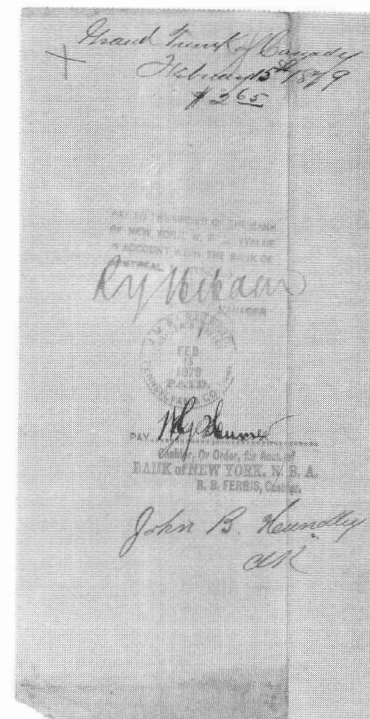 Grand Trunk of Canada
February 15th 1879
$2 65
PAY TO THE ORDER OF THE BANK
OF NEW YORK, N. B. A. VALUE
IN ACCOUNT WITH THE BANK OF
MONTREAL
MANAGER
FEB
15
1879
PAID
PENNSYLVANIA CO.
PAY
Cashier, Or Order, for Acct. of
BANK of NEW YORK, N. B. A.
R. B. FERRIS, Cashier.
John B. Hundley